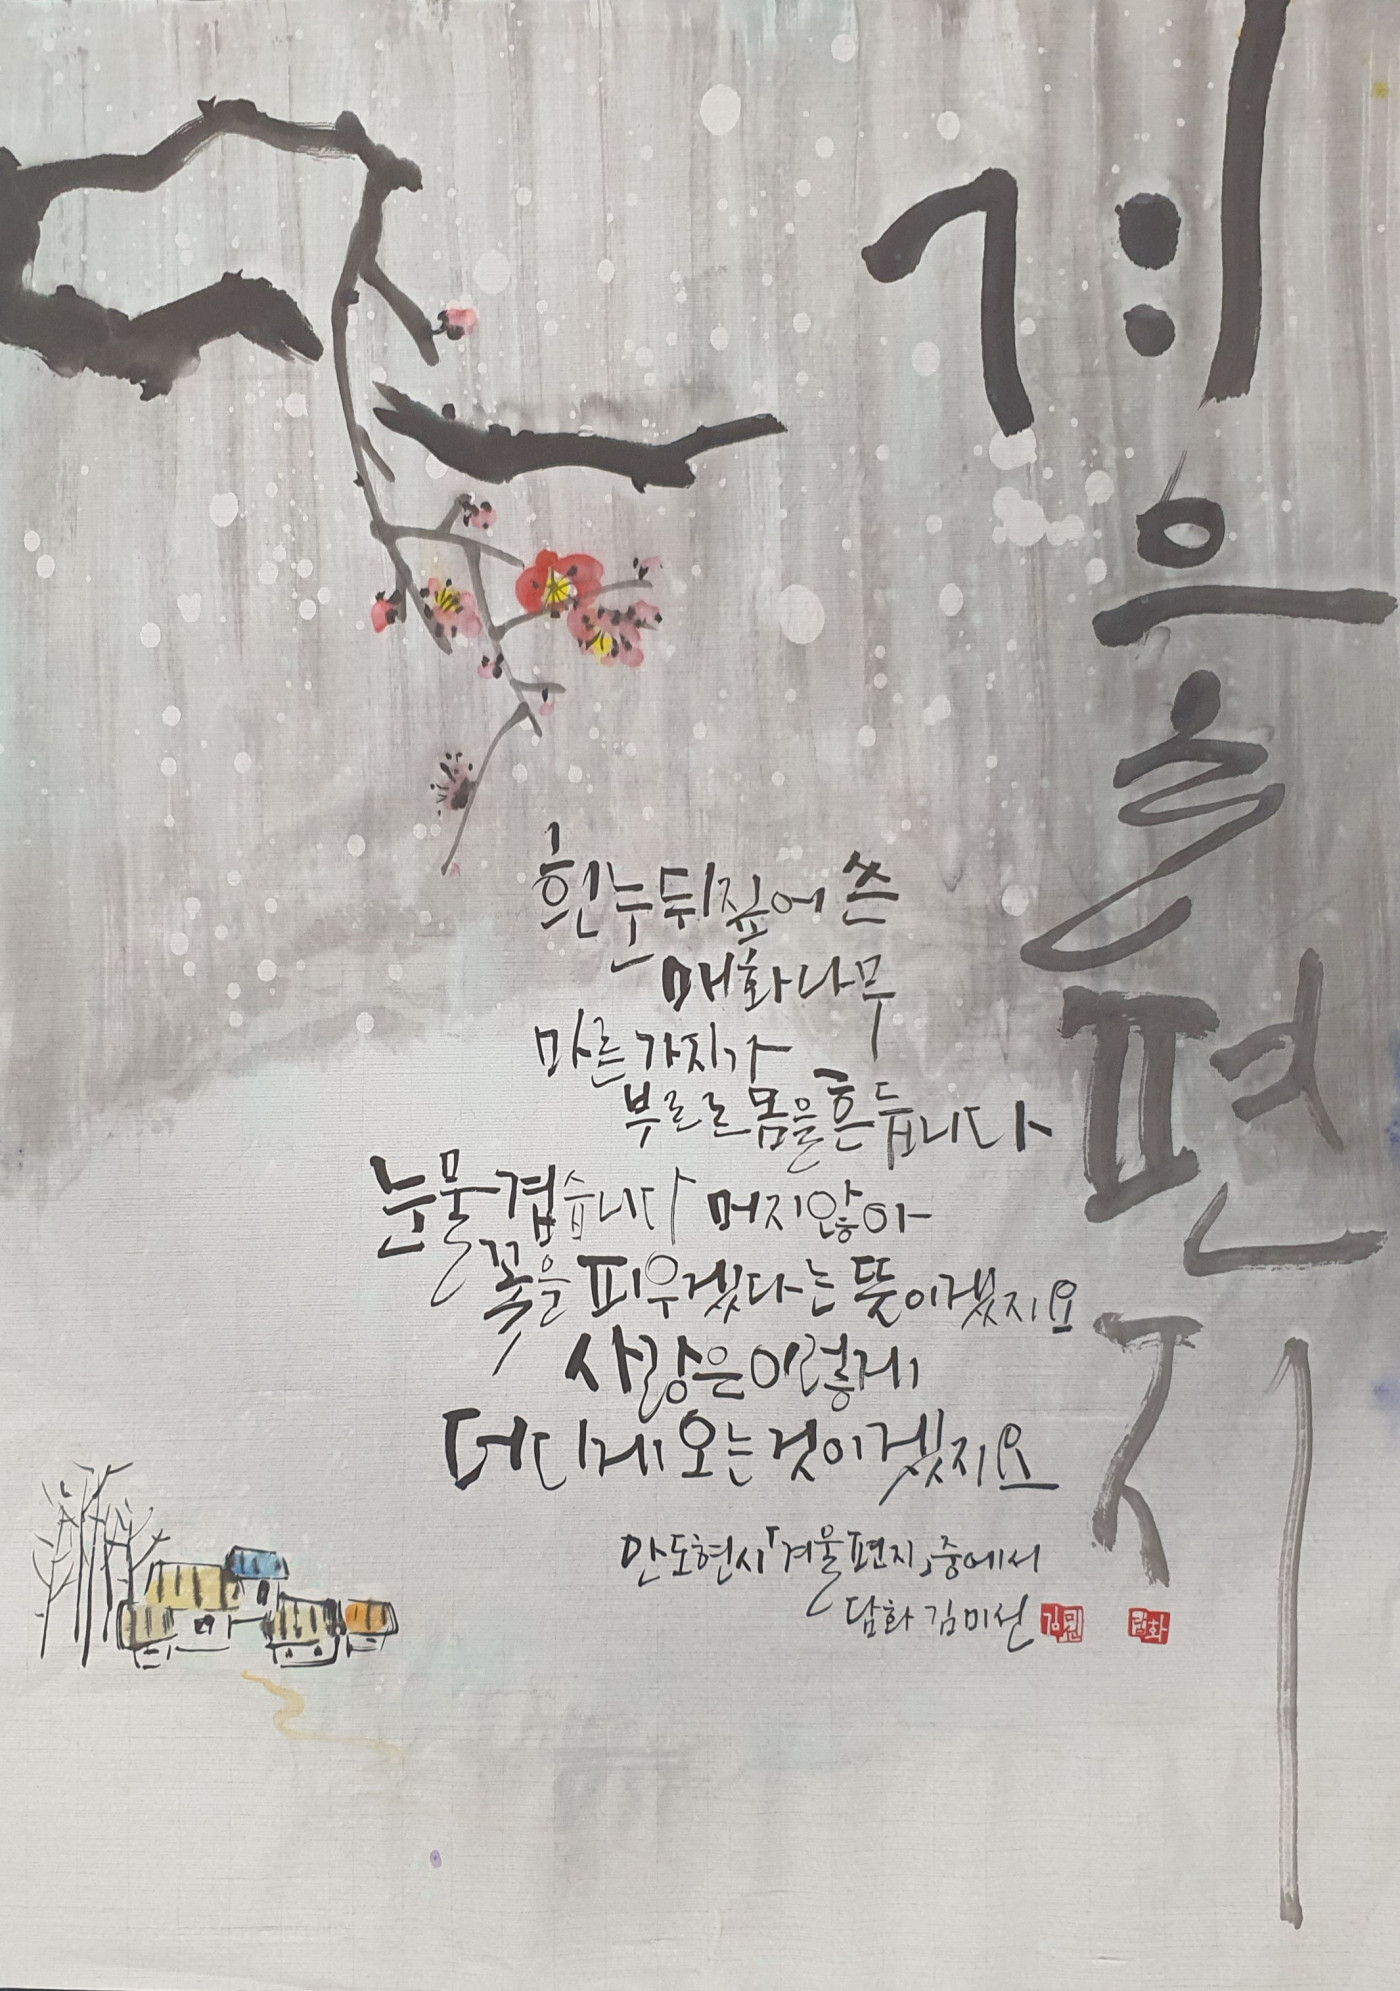 겨울편지
흰눈 뒤짚어 쓴
매화나무
마른 가지가
부르르 몸을 흔듭니다
눈물겹습니다 머지않아
꽃을 피우겠다는 뜻이겠지요
사랑은 이렇게
더디게 오는 것이겠지요
안도현시「겨울편지」중에서
담화 김미선
담화